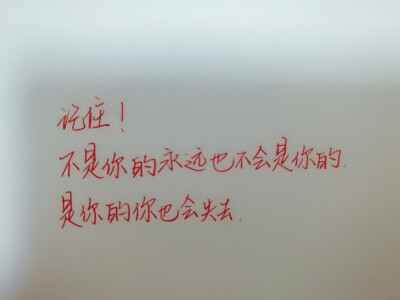 记住！
不是你的永远也不会是你的.
是你的你也会失去.